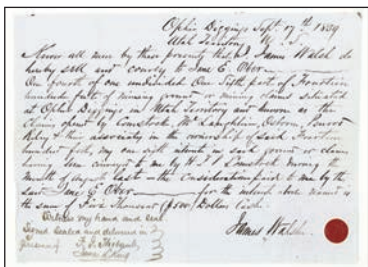 Ophir Diggings Sept. 17th 1859
Utah Territory U. S.
Know all men by these presents that I James Walsh do
hereby sell and convey to Jane E. Ober
One fourth of one undivided One Sixth part of Fourteen
hundred feet of mining ground or mining claims situated
at Ophir Diggings in Utah Territory and known as the
claims opened by Comstock, McLaughlin, Osborn, Penrod
Riley & their associates in the ownership of said Fourteen
hundred feet, my one sixth interest in said ground or claims
having been conveyed to me by H. T. P. Comstock during the
month of August last – the consideration paid to me by the
said Jane E. Ober for the interest above named is
the sum of Five Thousand Dollars Cash.
Witness my hand and seal
Signed sealed and delivered in
presence of
James Walsh